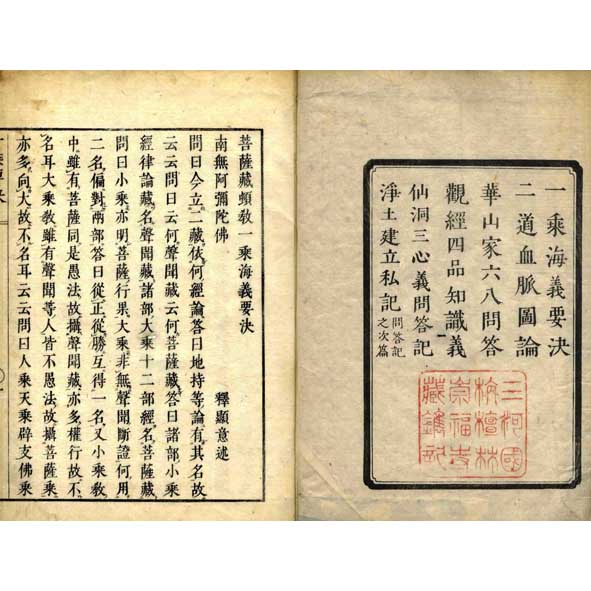 一乘海義要決
二道血脈圖論
華山家六八問答
觀經四品知識義
仙洞三心義問答記
淨土建立私記問答記之次篇
三河國
栴檀林
崇福寺
藏鐫記
菩薩藏頓教一乘海義要決
南無阿彌陀佛 釋顯意述
問曰今立二藏依何經論答曰地持等論有其名故
云云問曰云何聲聞藏云何菩薩藏答曰諸部小乘
經律論藏名聲聞藏諸部大乘十二部經名菩薩藏
問曰小乘亦明菩薩行果大乘非無聲聞斷證何用
二名偏對兩部答曰從正從勝互得一名又小乘教
中雖有菩薩同是愚法故攝聲聞藏亦多權行故不
名耳大乘教雖有聲聞等人皆不愚法故攝菩薩乘
亦多向大故不名耳云云問曰人乘天乘辟支佛乘